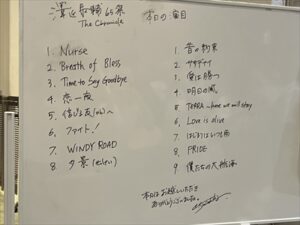 澤近泰輔 65祭
The Chronicle
本日の演目
1. Nurse
2. Breath of Bless
3. Time to Say Goodbye
4. 恋一夜
5. 信じる友(とも)へ
6. ファイト!
7. WINDY ROAD
8. 夕景
1. 昔の約束
2. サヨナラ
3. 愛は勝つ
4. 明日の風
5. TERRA-here we will stay
6. Love is alive
7. はじまりはいつも雨
8. PRIDE
9. 僕たちの大航海
本日はお越しいただき
ありがとうございます。